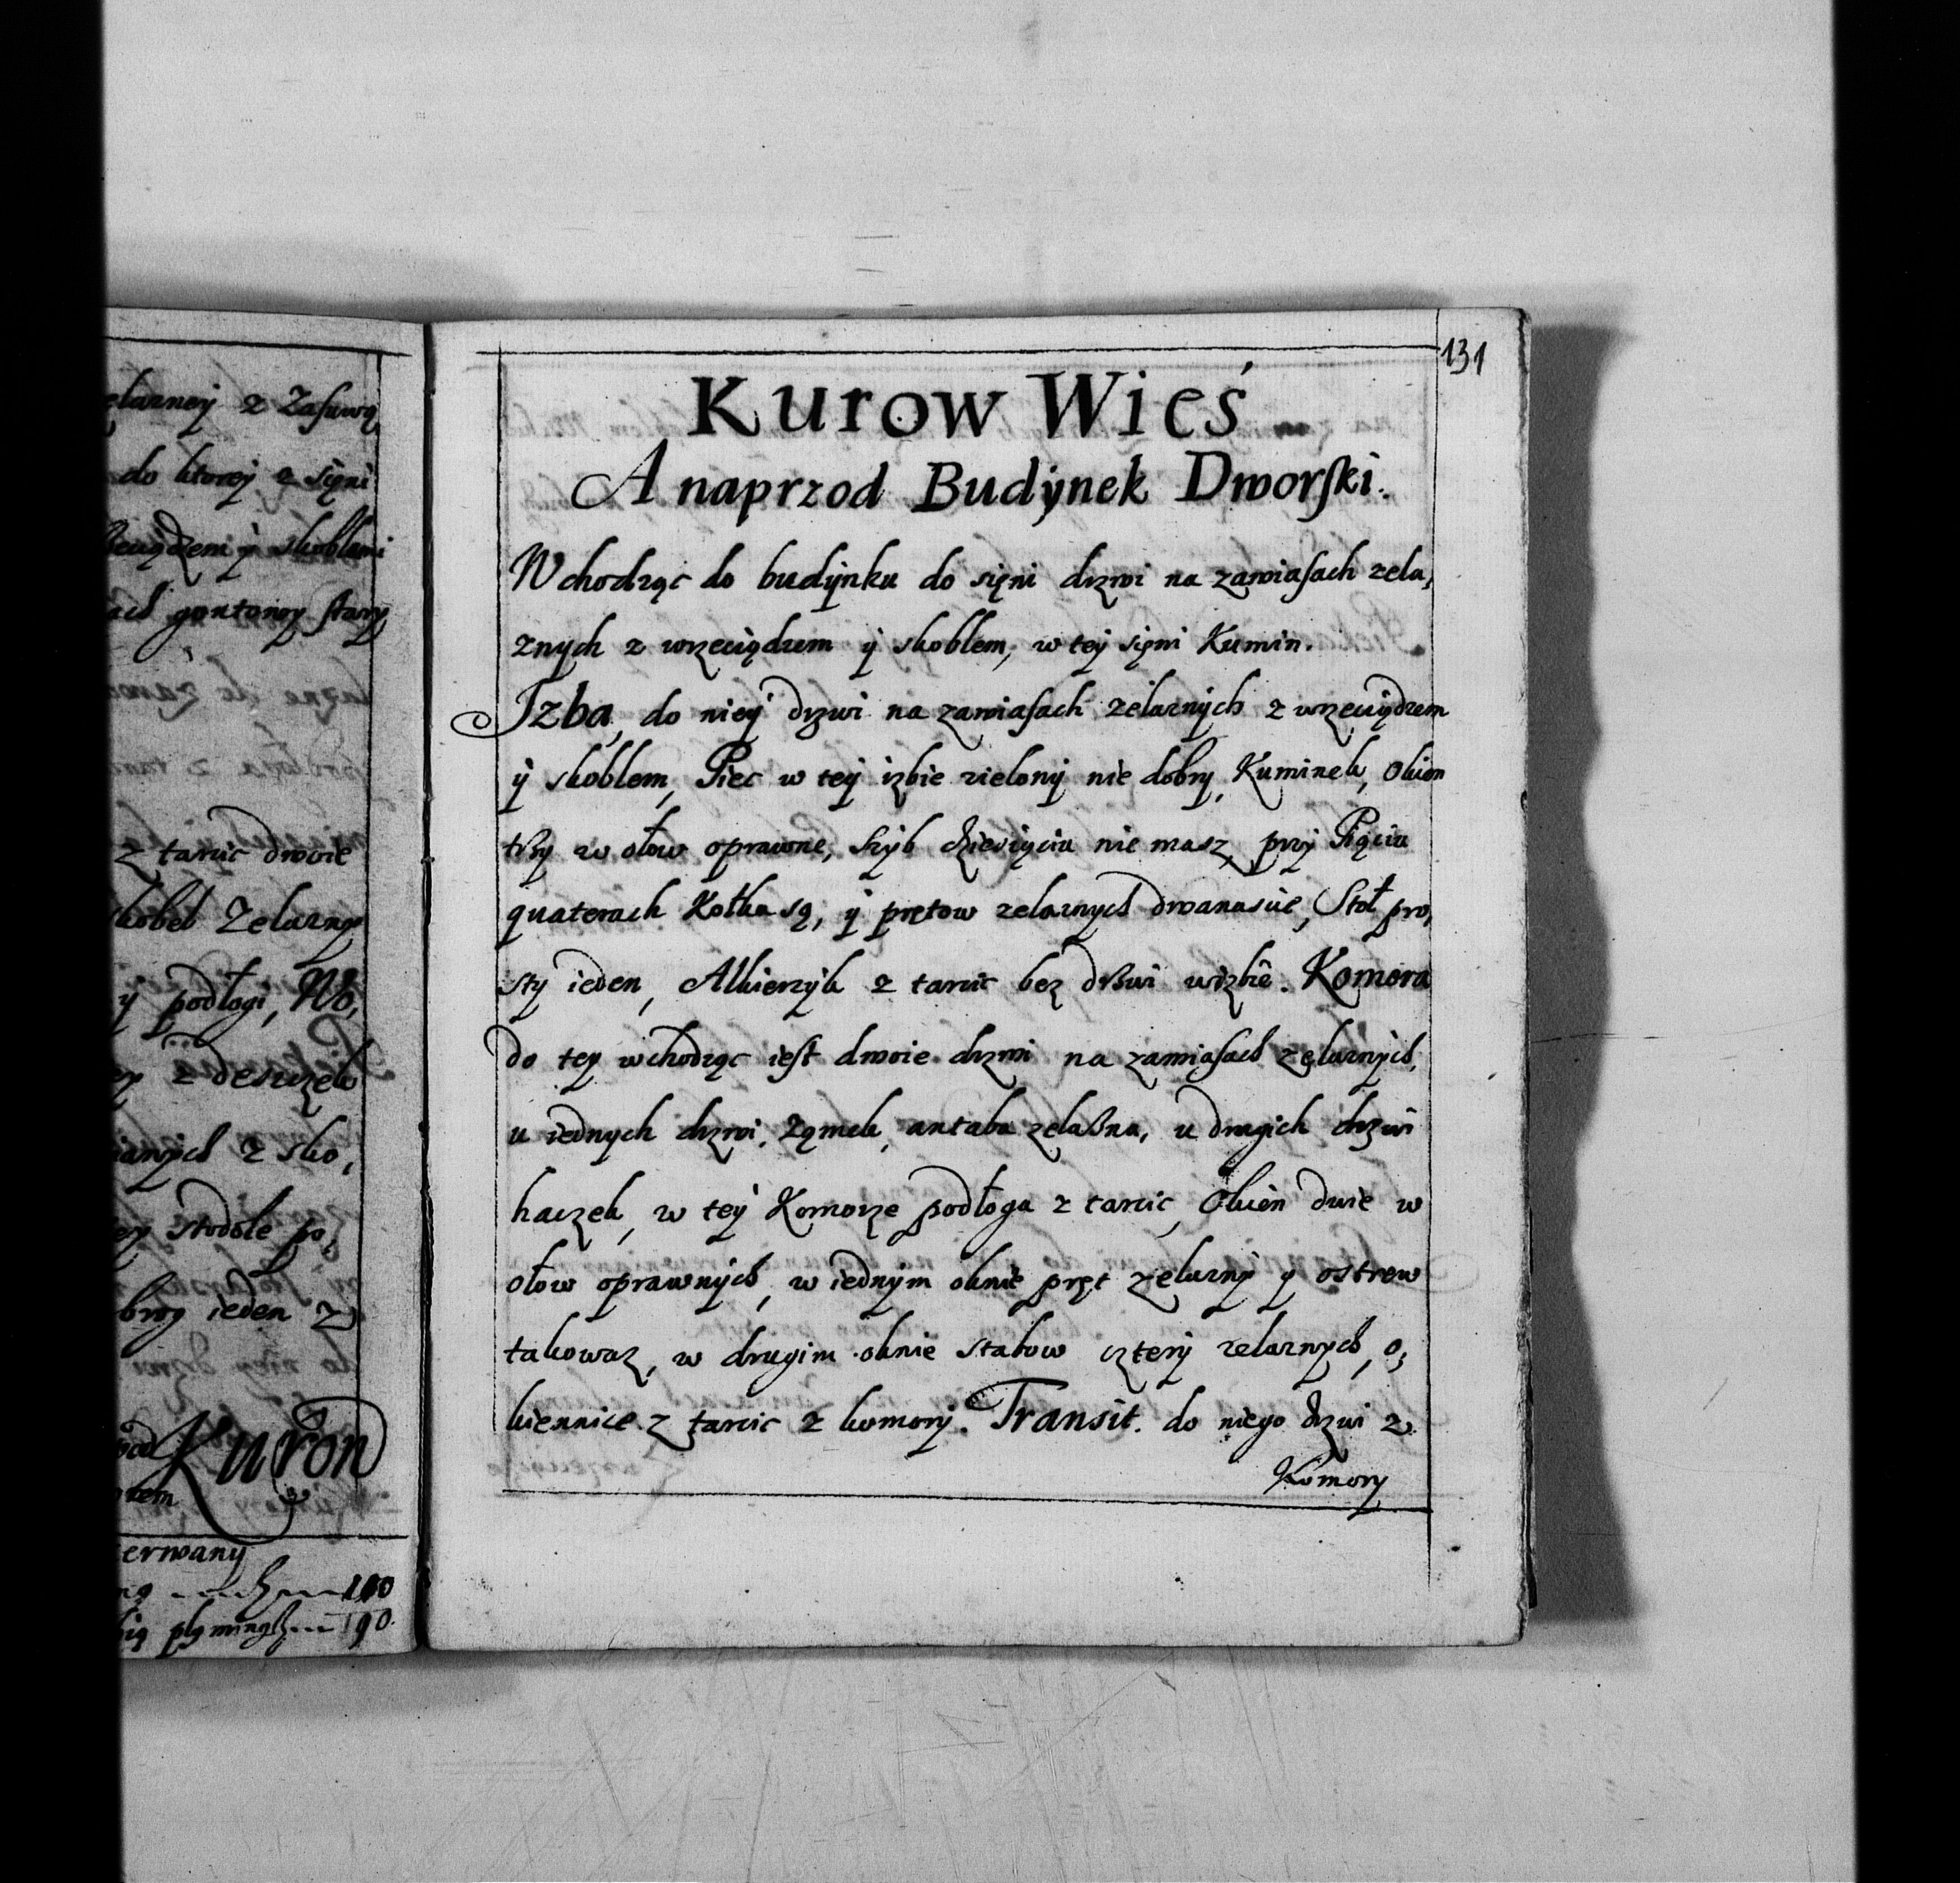 elazney z Zasuwą
do ktorey z sięni
skoblami
gontowy stary
z tarcic dwoie
skobel Zelazny
y podłogi, Wo,
z deszczek
z sko,
stodole po,
brog ieden z
Kuron
erwany
190
131
Kurow Wieś
A naprzod Budÿnek Dworski.
Wchodząc do budÿnku do sięni drzwi na zawiasach zela,
znych z wrzeciądzem ÿ skoblem, w teÿ sięni Kumin.
Izba, do nieÿ drzwi na zawiasach żelaznych z wrzeciądzem
ÿ skoblem, Piec w teÿ izbie zielonÿ nie dobrÿ, Kuminek, Okien
trzÿ w ołow oprawne, szÿb dziesięciu nie masz, przÿ Piąciu
quaterach Kołka są, ÿ prętow zelaznych dwanascie, Stoł pro,
sty ieden, Alkierzÿk z tarcic bez drzwi wizbie. Komora
do tey wchodząc iest dwoie drzwi na zawiasach zelaznÿch,
u iednych drzwi, Zamek, antaba zelaßna, u drugich drzwi
haczek, w teÿ Komorze podłoga z tarcic, Okien dwie w
ołow oprawnÿch, w iednÿm oknie pręt zelaznÿ y ostrew
takowaz, w drugim oknie stabow czterÿ zelaznÿch, o,
kiennice z tarcic z komorÿ. Transit. do niego drzwi z
Komory